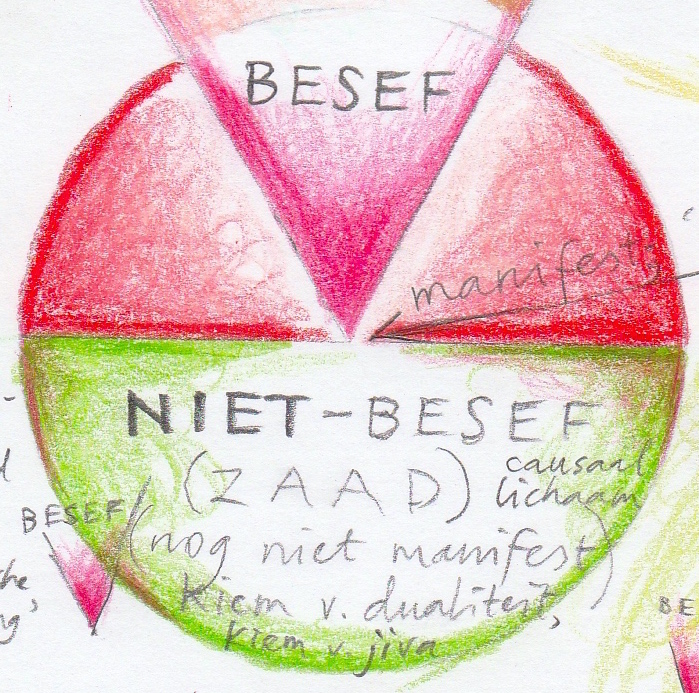 BESEF
manifest;
NIET-BESEF
(ZAAD)
causaal
lichaam
BESEF
(nog niet manifest)
Kiem v. dualiteit,
kiem v. jiva
BE